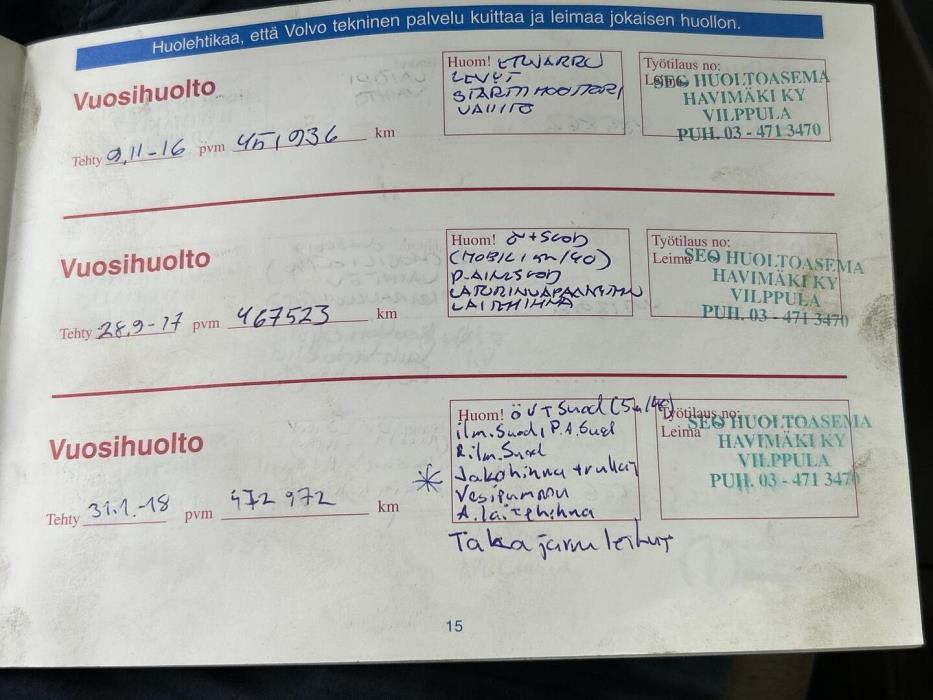 Huolehtikaa, että Volvo tekninen palvelu kuittaa ja leimaa jokaisen huollon.
Vuosihuolto
Tehty 9,11-16 pvm 451936 km
Huom! ETUJARRU
LEVYT
STARTTIMOOTTORI
VAIHTO
Työtilaus no:
Leima
SEO HUOLTOASEMA
HAVIMÄKI KY
VILPPULA
PUH. 03 - 471 3470
Vuosihuolto
Tehty 28.9-17 pvm 467523 km
Huom! Ö+SUOD
(MOBIL 5W/40)
P-AIN.SUOD
LAITEHIHNA
Työtilaus no:
Leima
SEO HUOLTOASEMA
HAVIMÄKI KY
VILPPULA
PUH. 03 - 471 3470
Vuosihuolto
Tehty 31.1.-18 pvm 472 972 km
Huom! öv+suod (5w/40)
ilm.Suod, P.A.Suod
R.ilm.Suod
* Jakohihna + rullat
Vesipumppu
A.laitehihna
Taka jarru letkut
Työtilaus no:
Leima
SEO HUOLTOASEMA
HAVIMÄKI KY
VILPPULA
PUH. 03 - 471 3470
15